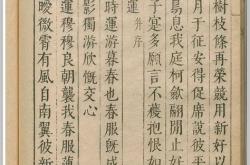 樹枝條再榮競用新好以
月于征安得促席說彼
鳥息我庭柯斂翮閒止好
子寔多願言不獲抱恨如
運并序
時運游暮春也春服既成
影獨游欣慨交心
運穆穆良朝襲我春服薄
曖微霄有風自南翼彼新